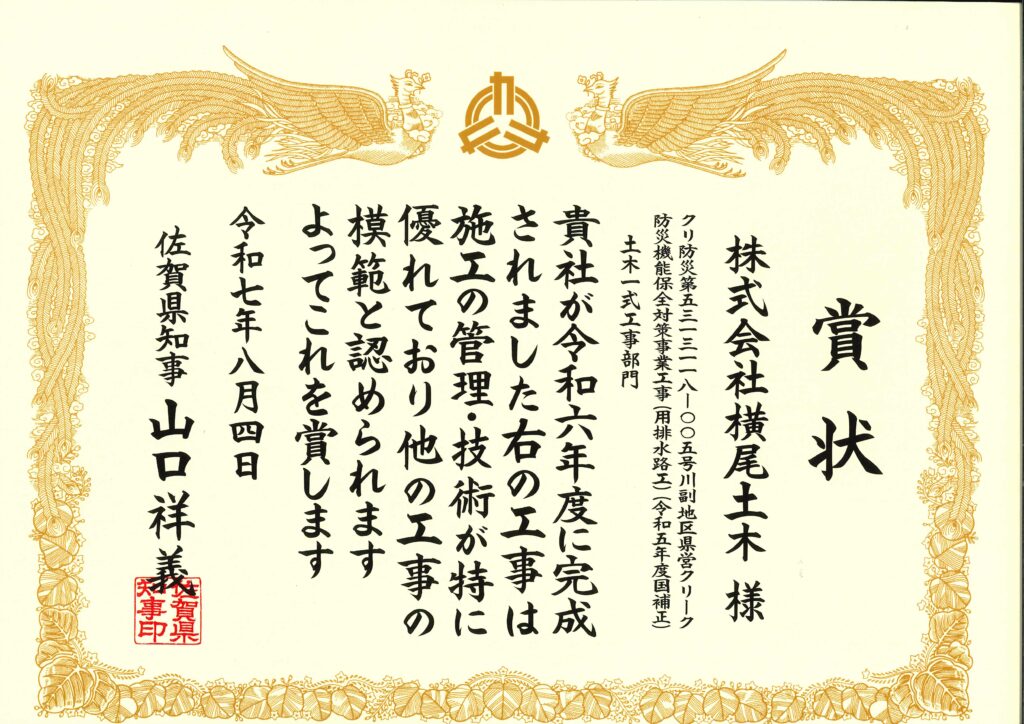 賞状
株式会社横尾土木 様
クリ防災第五三一三一一八―〇〇五号川副地区県営クリーク
防災機能保全対策事業工事(用排水路工)(令和五年度国補正)
土木一式工事部門
貴社が令和六年度に完成
されました右の工事は
施工の管理・技術が特に
優れており他の工事の
模範と認められます
よってこれを賞します
令和七年八月四日
佐賀県知事 山口祥義
佐賀県
知事印